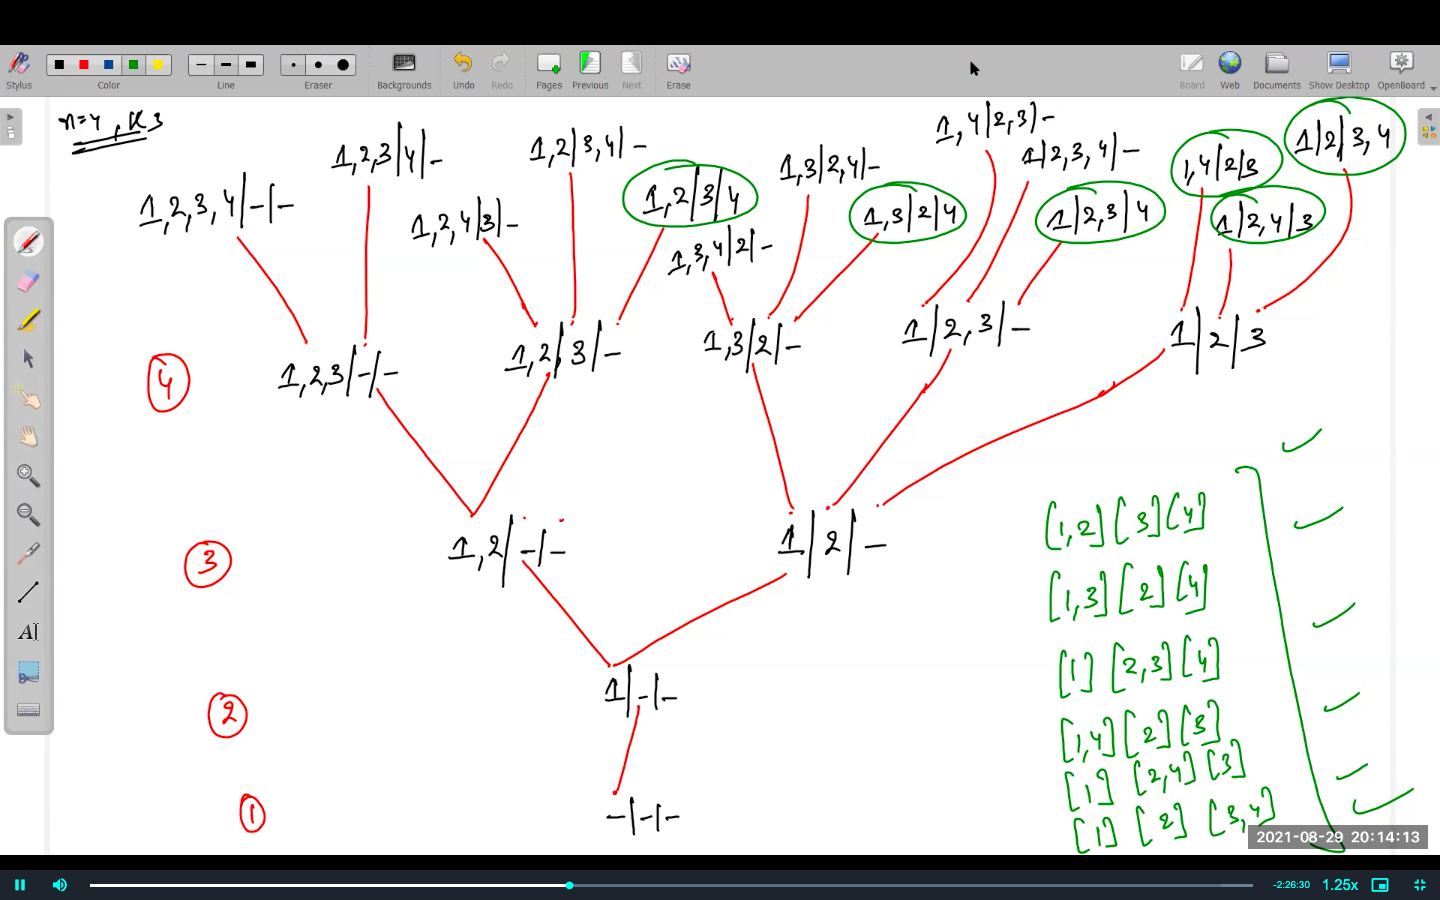 Stylus
Color
Line
Eraser
Backgrounds
Undo
Redo
Pages
Previous
Next
Erase
Board
Web
Documents
Show Desktop
OpenBoard
n=4, K3
1,2,3,4|-|-
1,2,3|4|-
1,2,4|3|-
1,2|3,4|-
1,2|3|4
1,3,4|2|-
1,3|2,4|-
1,3|2|4
1,4|2,3|-
1|2,3,4|-
1|2,3|4
1,4|2|3
1|2,4|3
1|2|3,4
4
1,2,3|-|-
1,2|3|-
1,3|2|-
1|2,3|-
1|2|3
3
1,2|-|-
1|2|-
2
1|-|-
1
-|-|-
[1,2] [3] [4]
[1,3] [2] [4]
[1] [2,3] [4]
[1,4] [2] [3]
[1] [2,4] [3]
[1] [2] [3,4]
AI
2021-08-29 20:14:13
-2:26:30
1.25x